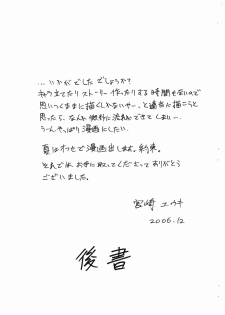 …いかがでしたでしょうか?
ネタ立てたりストーリー作ったりする時間もないので
思いつくままに描くしかないやー。と適当に描こうと
思ったら、なんか微妙に流れができてしまい…
うーん、やっぱり漫画にしたい。
夏はわせで漫画出します。約束。
それではお手に取ってくださってありがとう
ございました。
宮崎 ユウキ
2006.12
後書